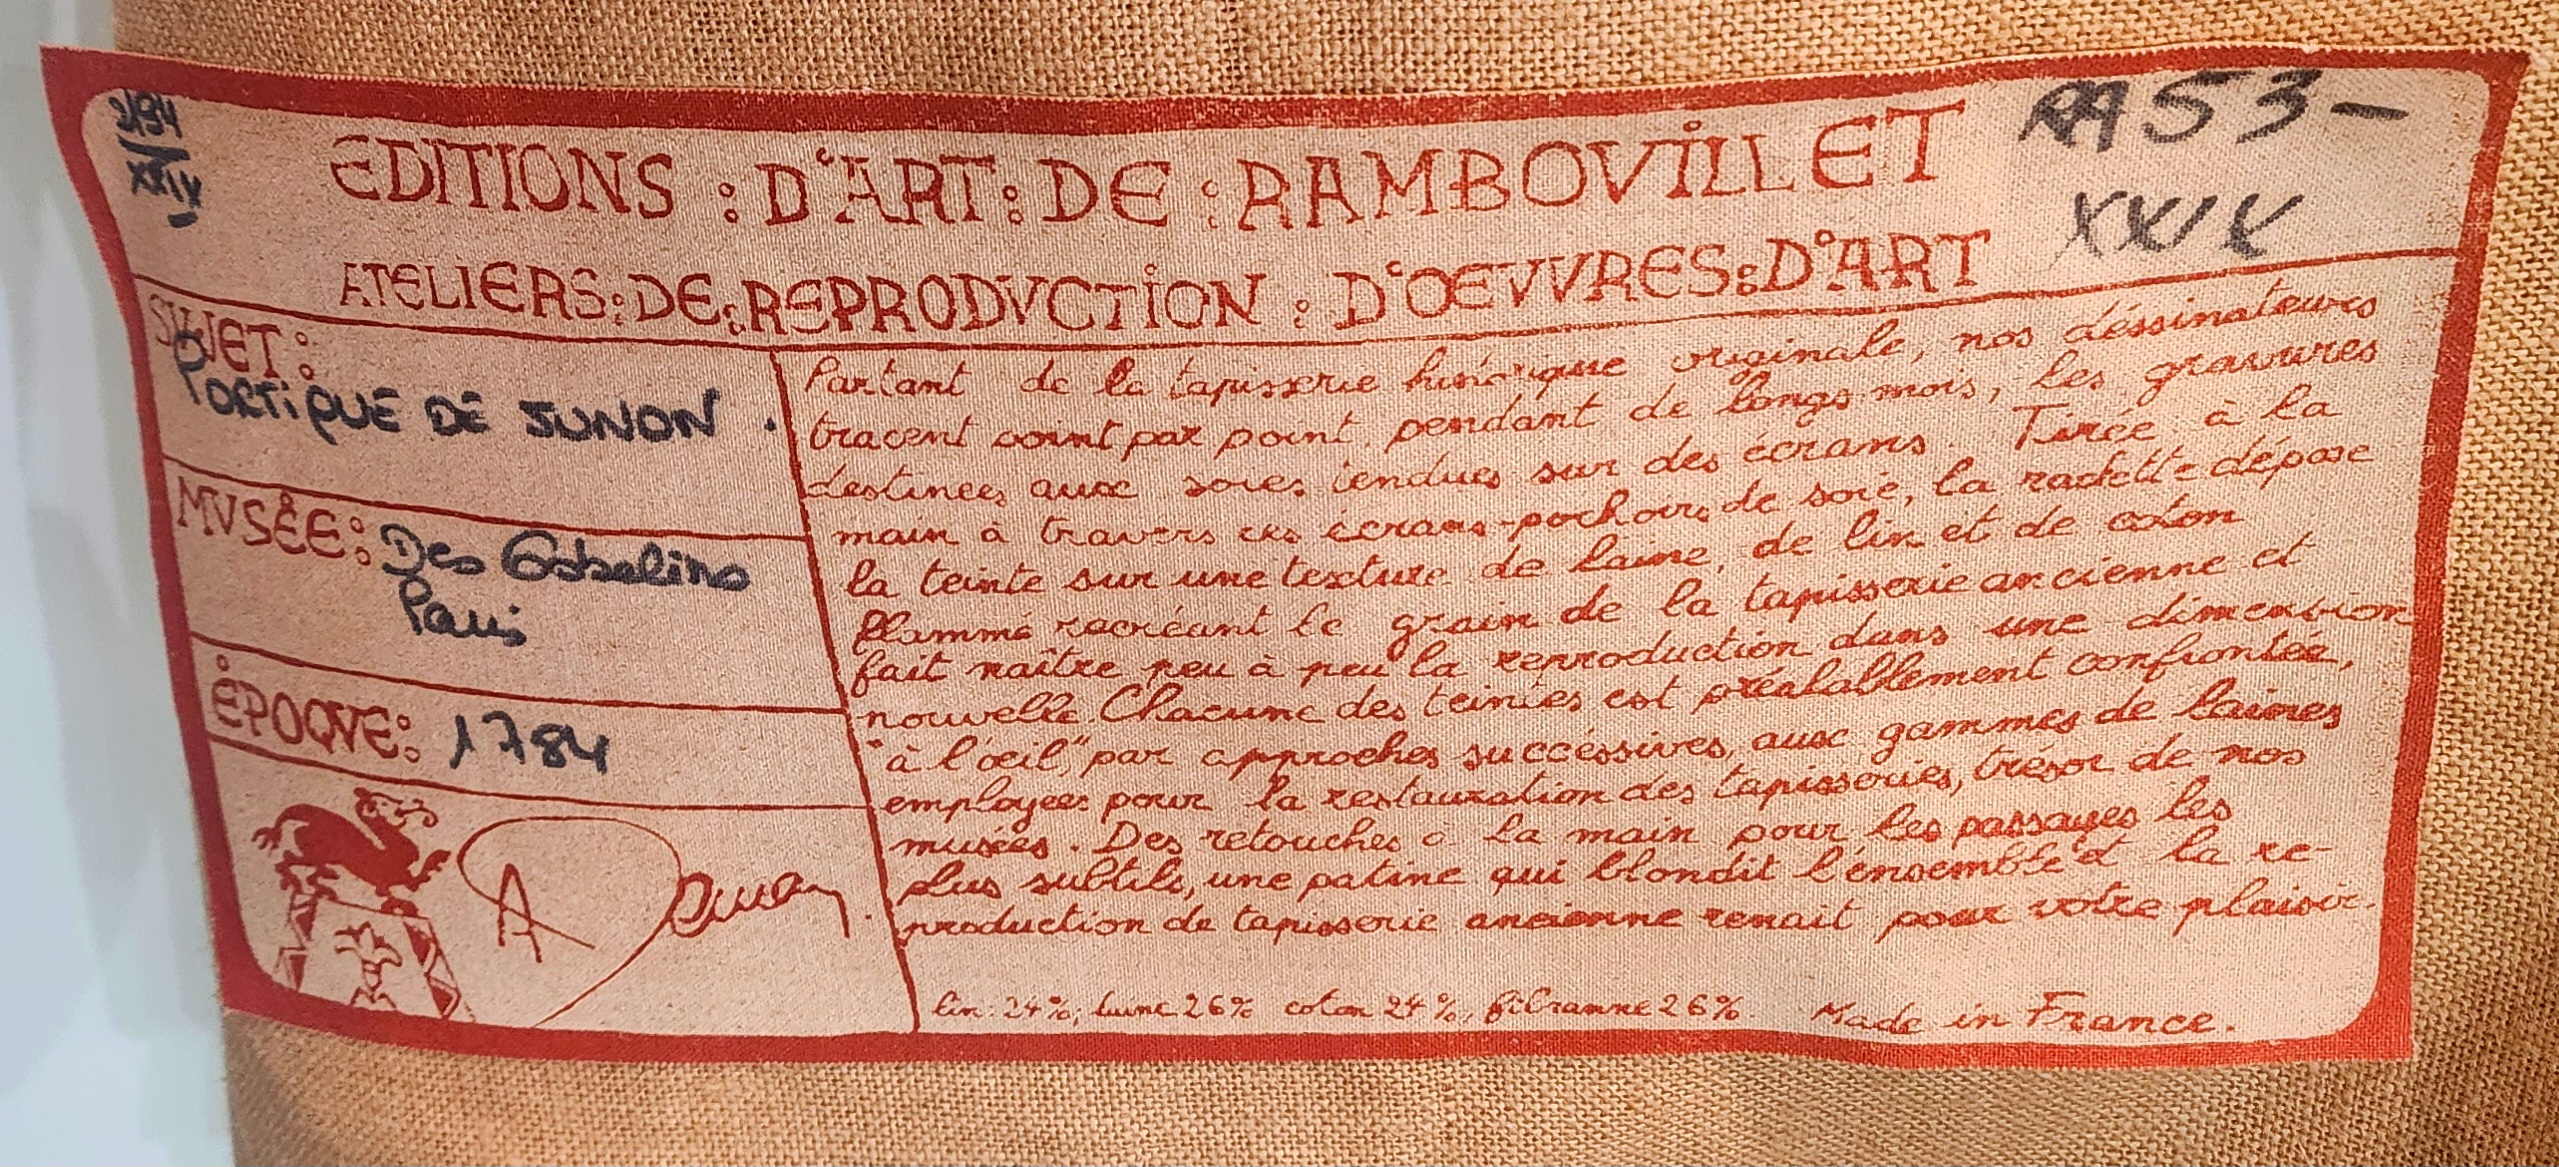 2194
XXIV
EDITIONS : D'ART : DE : RAMBOVILLET
53-
ATELIERS : DE : REPRODVCTION : D'OEVVRES : D'ART
XXIV
SUJET :
PORTIQUE DE JUNON.
MVSÉE : Des Gobelins
Paris
ÉPOQVE : 1784
A
Partant de la tapisserie historique originale, nos déssinateurs
tracent point par point, pendant de longs mois, les gravures
destinées aux soies tendues sur des écrans. Tirée à la
main à travers ces écrans-pochoirs de soie, la raclette dépose
la teinte sur une texture de laine, de lin et de coton
flammé recréant le grain de la tapisserie ancienne et
fait naître peu à peu la reproduction dans une dimension
nouvelle. Chacune des teintes est préalablement confrontée,
"à l'œil," par approches succéssives, aux gammes de laines
employées pour la restauration des tapisseries, trésor de nos
musées. Des retouches à la main pour les passages les
plus subtils, une patine qui blondit l'ensemble et la re-
production de tapisserie ancienne renait pour votre plaisir.
lin: 24%, laine 26% coton 24%, fibranne 26%. Made in France.